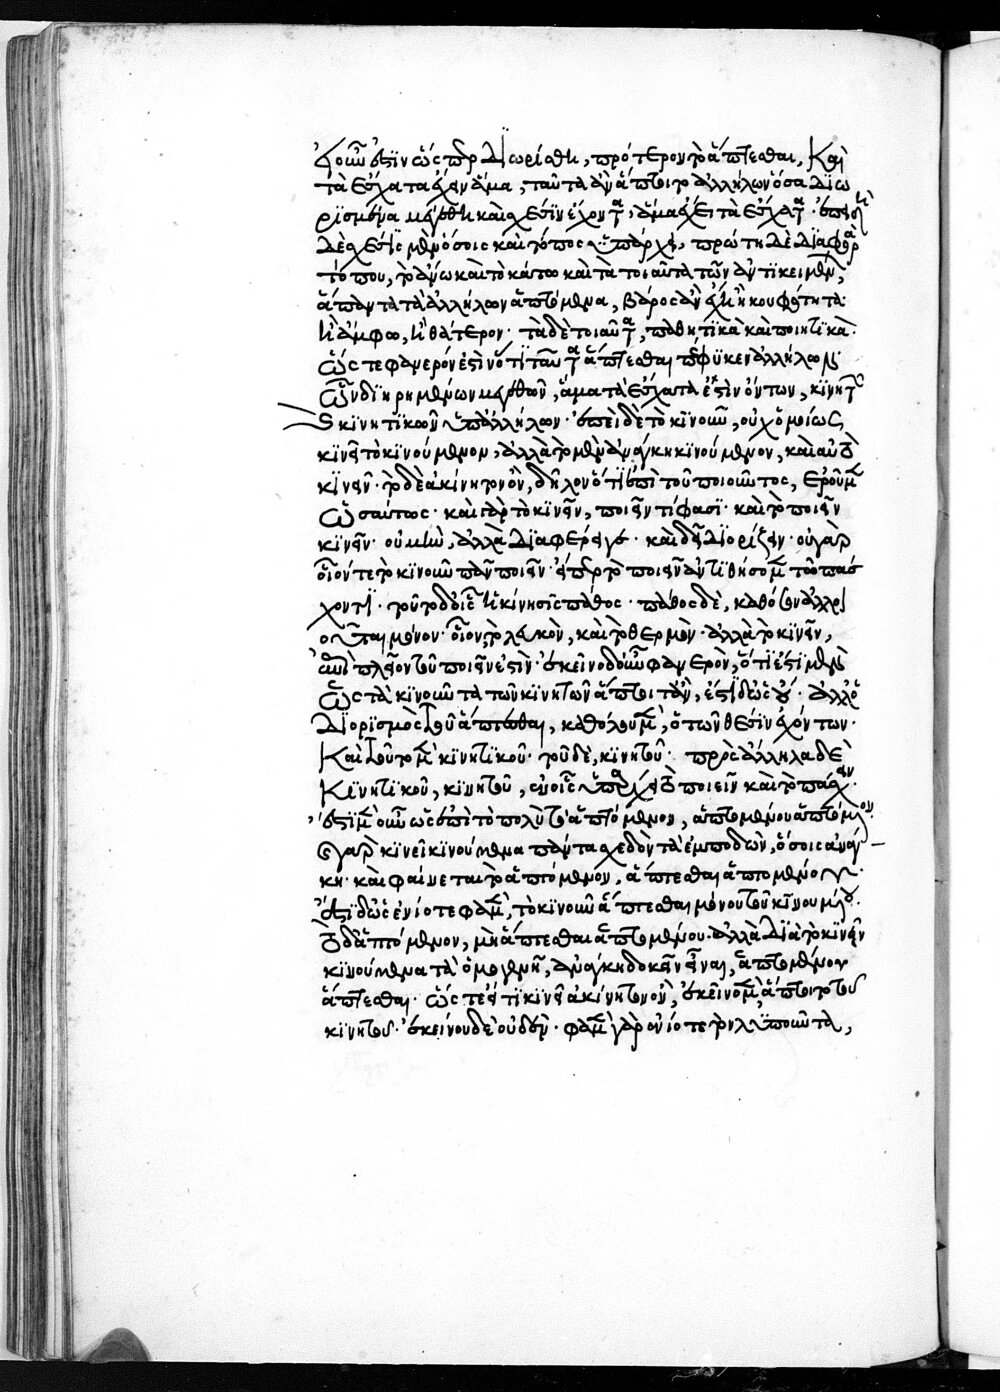 εἰ οὖν ἐστὶν ὥσπερ διωρίσθη, πρότερον τὸ ἅπτεσθαι, καὶ
τὰ ἔσχατα ἔχειν ἅμα, ταῦτα ἂν ἅπτοιτο ἀλλήλων ὅσα διω
ρισμένα μεγέθη καὶ θέσιν ἔχοντα, ἅμα ἔχει τὰ ἔσχατα. ἐπεὶ
δὲ θέσις μὲν ὅσοις καὶ τόπος ὑπάρχει, πρώτη δὲ διαφορὰ
τόπου, τὸ ἄνω καὶ τὸ κάτω καὶ τὰ τοιαῦτα τῶν ἀντικειμένων,
ἅπαντα τὰ ἀλλήλων ἁπτόμενα, βάρος ἂν ἔχοι ἢ κουφότητα
ἢ ἄμφω, ἢ θάτερον. τὰ δὲ τοιαῦτα, παθητικὰ καὶ ποιητικά.
ὥστε φανερόν ἐστιν ὅτι ταῦτα ἅπτεσθαι πέφυκεν ἀλλήλων
ὧν διῃρημένων μεγεθῶν, ἅμα τὰ ἔσχατά ἐστιν ὄντων, κινητῶν
καὶ κινητικῶν ὑπ' ἀλλήλων. ἐπεὶ δὲ τὸ κινοῦν, οὐχ ὁμοίως
κινεῖ τὸ κινούμενον, ἀλλὰ τὸ μὲν ἀνάγκη κινούμενον, καὶ αὐτὸ
κινεῖν. τὸ δὲ ἀκίνητον ὂν, δῆλον ὅτι ἐπὶ τοῦ ποιοῦντος, ἐροῦμεν
ὡσαύτως. καὶ γὰρ τὸ κινεῖν, ποιεῖν τί φασι. καὶ τὸ ποιεῖν
κινεῖν. οὐ μὴν, ἀλλὰ διαφέρει γε. καὶ δεῖ διορίζειν. οὐ γὰρ
οἷόν τε τὸ κινοῦν πᾶν ποιεῖν. εἴπερ τὸ ποιεῖν ἀντιθήσομεν τῷ πάσ
χοντι. τοῦτο δ' οἷς ἡ κίνησις πάθος. πάθος δὲ, καθ' ὅσον ἀλλοι
οῦται μόνον. οἷον, τὸ λευκὸν, καὶ τὸ θερμόν. ἀλλὰ τὸ κινεῖν,
ἐπὶ πλέον τοῦ ποιεῖν ἐστίν. ἐκεῖνο δ' οὖν φανερὸν, ὅτι ἔστι μὲν
ὡς τὰ κινοῦντα τῶν κινητῶν ἅπτοιτ' ἂν, ἔστι δ' ὡς οὔ. ἀλλ' ὁ
διορισμὸς τοῦ ἅπτεσθαι, καθόλου μὲν, ὁ τῶν θέσιν ἐχόντων.
καὶ τοῦ μὲν κινητικοῦ. τοῦ δὲ, κινητοῦ. πρὸς ἄλληλα δὲ
κινητικοῦ, κινητοῦ, ἐν οἷς ὑπάρχει τὸ ποιεῖν καὶ τὸ πάσχειν.
ἔστι μὲν οὖν ὡς ἐπὶ τὸ πολὺ τὸ ἁπτόμενον, ἁπτομένου ἁπτόμενον.
καὶ γὰρ κινεῖ κινούμενα πάντα σχεδὸν τὰ ἐμποδών, ὅσοις ἀνάγ
κη. καὶ φαίνεται τὸ ἁπτόμενον, ἅπτεσθαι ἁπτομένου.
ἔστι δ' ὡς ἐνίοτέ φαμεν, τὸ κινοῦν ἅπτεσθαι μόνον τοῦ κινουμένου.
τὸ δ' ἁπτόμενον, μὴ ἅπτεσθαι ἁπτομένου. ἀλλὰ διὰ τὸ κινεῖν
κινούμενα τὰ ὁμογενῆ, ἀνάγκη δοκεῖ εἶναι, ἁπτομένου
ἅπτεσθαι. ὥστε εἴ τι κινεῖ ἀκίνητον ὂν, ἐκεῖνο μὲν, ἅπτοιτο τοῦ
κινητοῦ. ἐκείνου δὲ οὐδέν. φαμὲν γὰρ ἐνίοτε τὸν λυποῦντα,